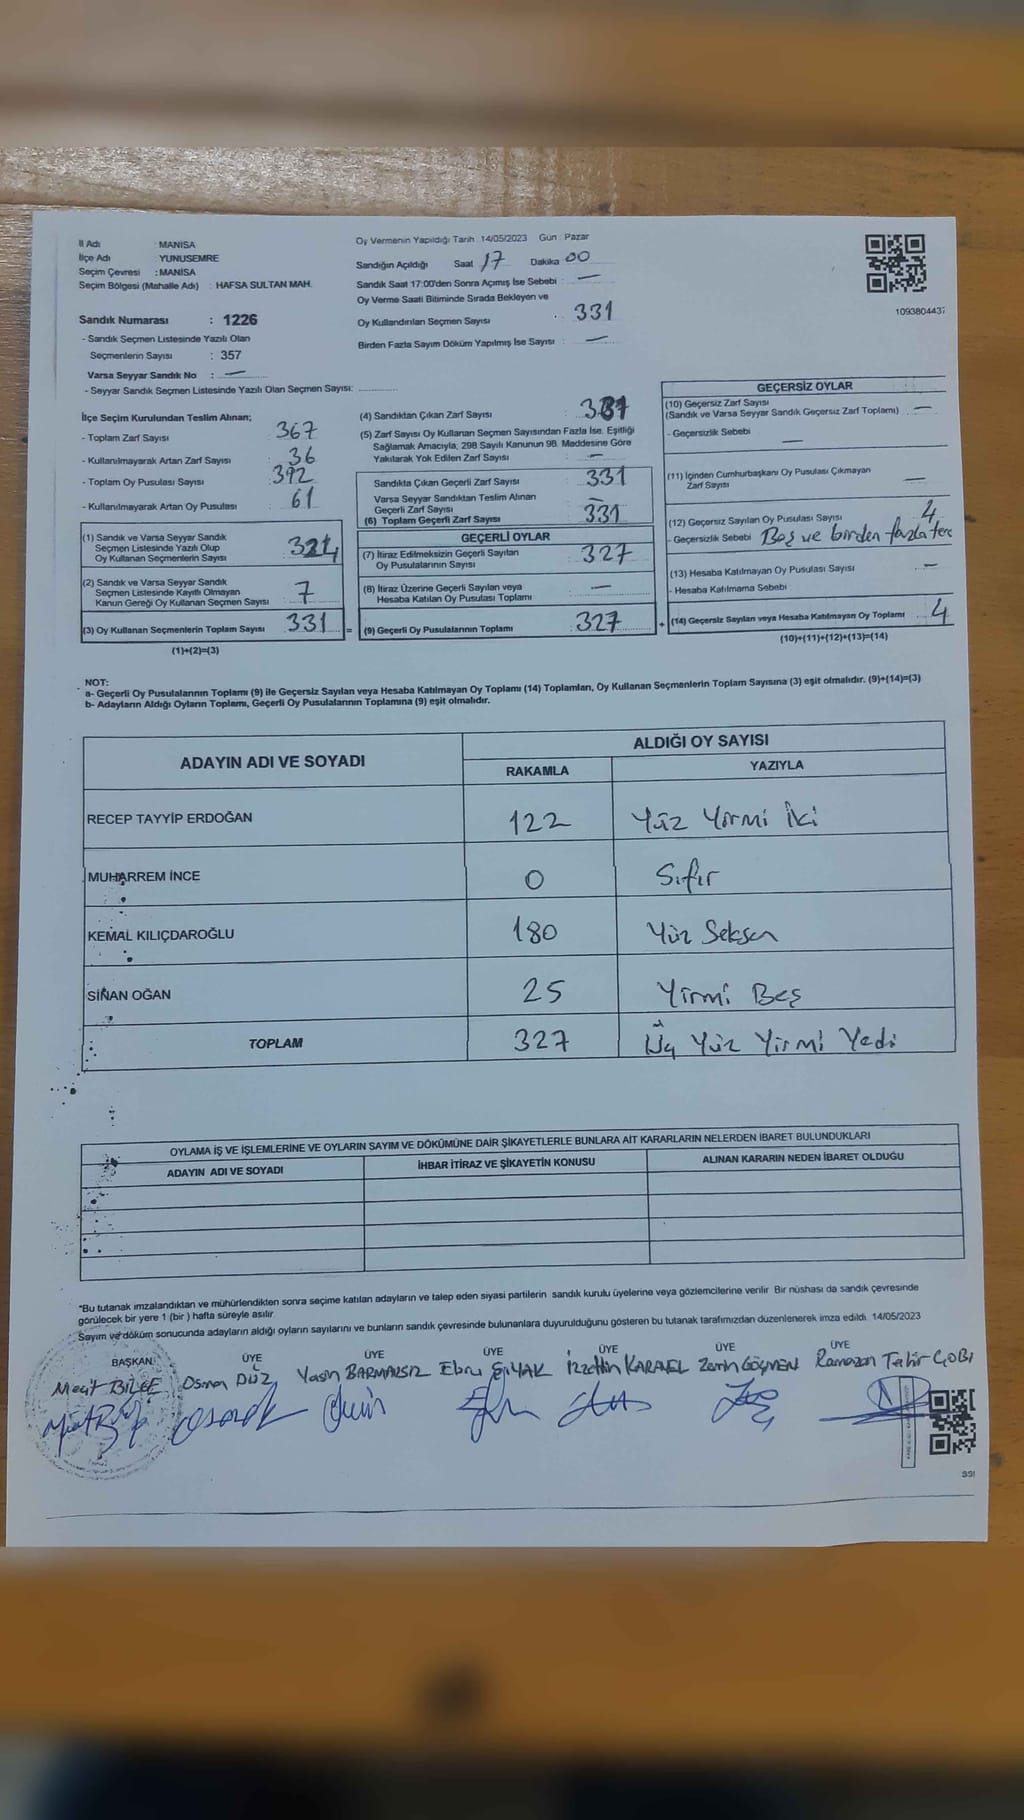 İl Adı : MANİSA
İlçe Adı : YUNUSEMRE
Seçim Çevresi : MANİSA
Seçim Bölgesi (Mahalle Adı) : HAFSA SULTAN MAH.
Sandık Numarası : 1226
- Sandık Seçmen Listesinde Yazılı Olan
Seçmenlerin Sayısı : 357
Varsa Seyyar Sandık No : —
- Seyyar Sandık Seçmen Listesinde Yazılı Olan Seçmen Sayısı: ............
Oy Vermenin Yapıldığı Tarih : 14/05/2023 Gün : Pazar
Sandığın Açıldığı Saat 17 Dakika 00
Sandık Saat 17:00'den Sonra Açmış İse Sebebi : —
Oy Verme Saati Bitiminde Sırada Bekleyen ve
Oy Kullandırılan Seçmen Sayısı : 331
Birden Fazla Sayım Döküm Yapılmış İse Sayısı : —
1093804437
İlçe Seçim Kurulundan Teslim Alınan;
- Toplam Zarf Sayısı : 367
- Kullanılmayarak Artan Zarf Sayısı : 36
- Toplam Oy Pusulası Sayısı : 392
- Kullanılmayarak Artan Oy Pusulası : 61
(1) Sandık ve Varsa Seyyar Sandık
Seçmen Listesinde Yazılı Olup
Oy Kullanan Seçmenlerin Sayısı 324
(2) Sandık ve Varsa Seyyar Sandık
Seçmen Listesinde Kayıtlı Olmayan
Kanun Gereği Oy Kullanan Seçmen Sayısı 7
(3) Oy Kullanan Seçmenlerin Toplam Sayısı 331 =
(1)+(2)=(3)
(4) Sandıktan Çıkan Zarf Sayısı : 331
(5) Zarf Sayısı Oy Kullanan Seçmen Sayısından Fazla İse, Eşitliği
Sağlamak Amacıyla; 298 Sayılı Kanunun 98. Maddesine Göre
Yakılarak Yok Edilen Zarf Sayısı : —
Sandıkta Çıkan Geçerli Zarf Sayısı : 331
Varsa Seyyar Sandıktan Teslim Alınan
Geçerli Zarf Sayısı : —
(6) Toplam Geçerli Zarf Sayısı : 331
GEÇERLİ OYLAR
(7) İtiraz Edilmeksizin Geçerli Sayılan
Oy Pusulalarının Sayısı : 327
(8) İtiraz Üzerine Geçerli Sayılan veya
Hesaba Katılan Oy Pusulası Toplamı : —
(9) Geçerli Oy Pusulalarının Toplamı : 327 +
GEÇERSİZ OYLAR
(10) Geçersiz Zarf Sayısı
(Sandık ve Varsa Seyyar Sandık Geçersiz Zarf Toplamı) : —
- Geçersizlik Sebebi
—
(11) İçinden Cumhurbaşkanı Oy Pusulası Çıkmayan
Zarf Sayısı : —
(12) Geçersiz Sayılan Oy Pusulası Sayısı : 4
- Geçersizlik Sebebi : Boş ve birden fazla terc
(13) Hesaba Katılmayan Oy Pusulası Sayısı : —
- Hesaba Katılmama Sebebi :
(14) Geçersiz Sayılan veya Hesaba Katılmayan Oy Toplamı : 4
(10)+(11)+(12)+(13)=(14)
NOT:
a- Geçerli Oy Pusulalarının Toplamı (9) ile Geçersiz Sayılan veya Hesaba Katılmayan Oy Toplamı (14) Toplamları, Oy Kullanan Seçmenlerin Toplam Sayısına (3) eşit olmalıdır. (9)+(14)=(3)
b- Adayların Aldığı Oyların Toplamı, Geçerli Oy Pusulalarının Toplamına (9) eşit olmalıdır.
ADAYIN ADI VE SOYADI
ALDIĞI OY SAYISI
RAKAMLA YAZIYLA
RECEP TAYYİP ERDOĞAN 122 Yüz Yirmi İki
MUHARREM İNCE 0 Sıfır
KEMAL KILIÇDAROĞLU 180 Yüz Seksen
SİNAN OĞAN 25 Yirmi Beş
TOPLAM 327 Üç Yüz Yirmi Yedi
OYLAMA İŞ VE İŞLEMLERİNE VE OYLARIN SAYIM VE DÖKÜMÜNE DAİR ŞİKAYETLERLE BUNLARA AİT KARARLARIN NELERDEN İBARET BULUNDUKLARI
ADAYIN ADI VE SOYADI İHBAR İTİRAZ VE ŞİKAYETİN KONUSU ALINAN KARARIN NEDEN İBARET OLDUĞU
*Bu tutanak imzalandıktan ve mühürlendikten sonra seçime katılan adayların ve talep eden siyasi partilerin sandık kurulu üyelerine veya gözlemcilerine verilir. Bir nüshası da sandık çevresinde
görülecek bir yere 1 (bir ) hafta süreyle asılır.
Sayım ve döküm sonucunda adayların aldığı oyların sayılarını ve bunların sandık çevresinde bulunanlara duyurulduğunu gösteren bu tutanak tarafımızdan düzenlenerek imza edildi. 14/05/2023
BAŞKAN ÜYE ÜYE ÜYE ÜYE ÜYE ÜYE
Mecit BİLGE Osman DÜZ Yasin Ebru İzzettin Zerrin GÖÇMEN Ramazan Tahir ÇOBA